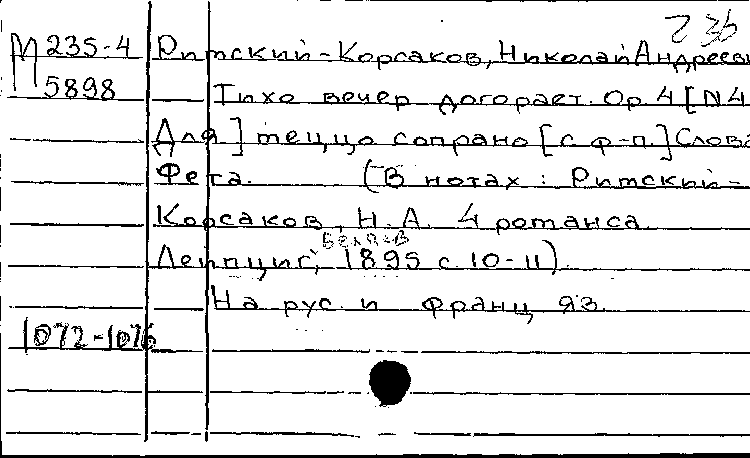 235
М 235-4 Римский-Корсаков, Николай Андреевич
5898 Тихо вечер догорает. Op. 4 [N 4
Для] меццо сопрано [с ф-п.] Слова
Фета. (В нотах: Римский-
Корсаков, Н.А. 4 романса.
Беляев
Лейпциг, 1895 с. 10-11).
На рус. и франц. яз.
1072-1076